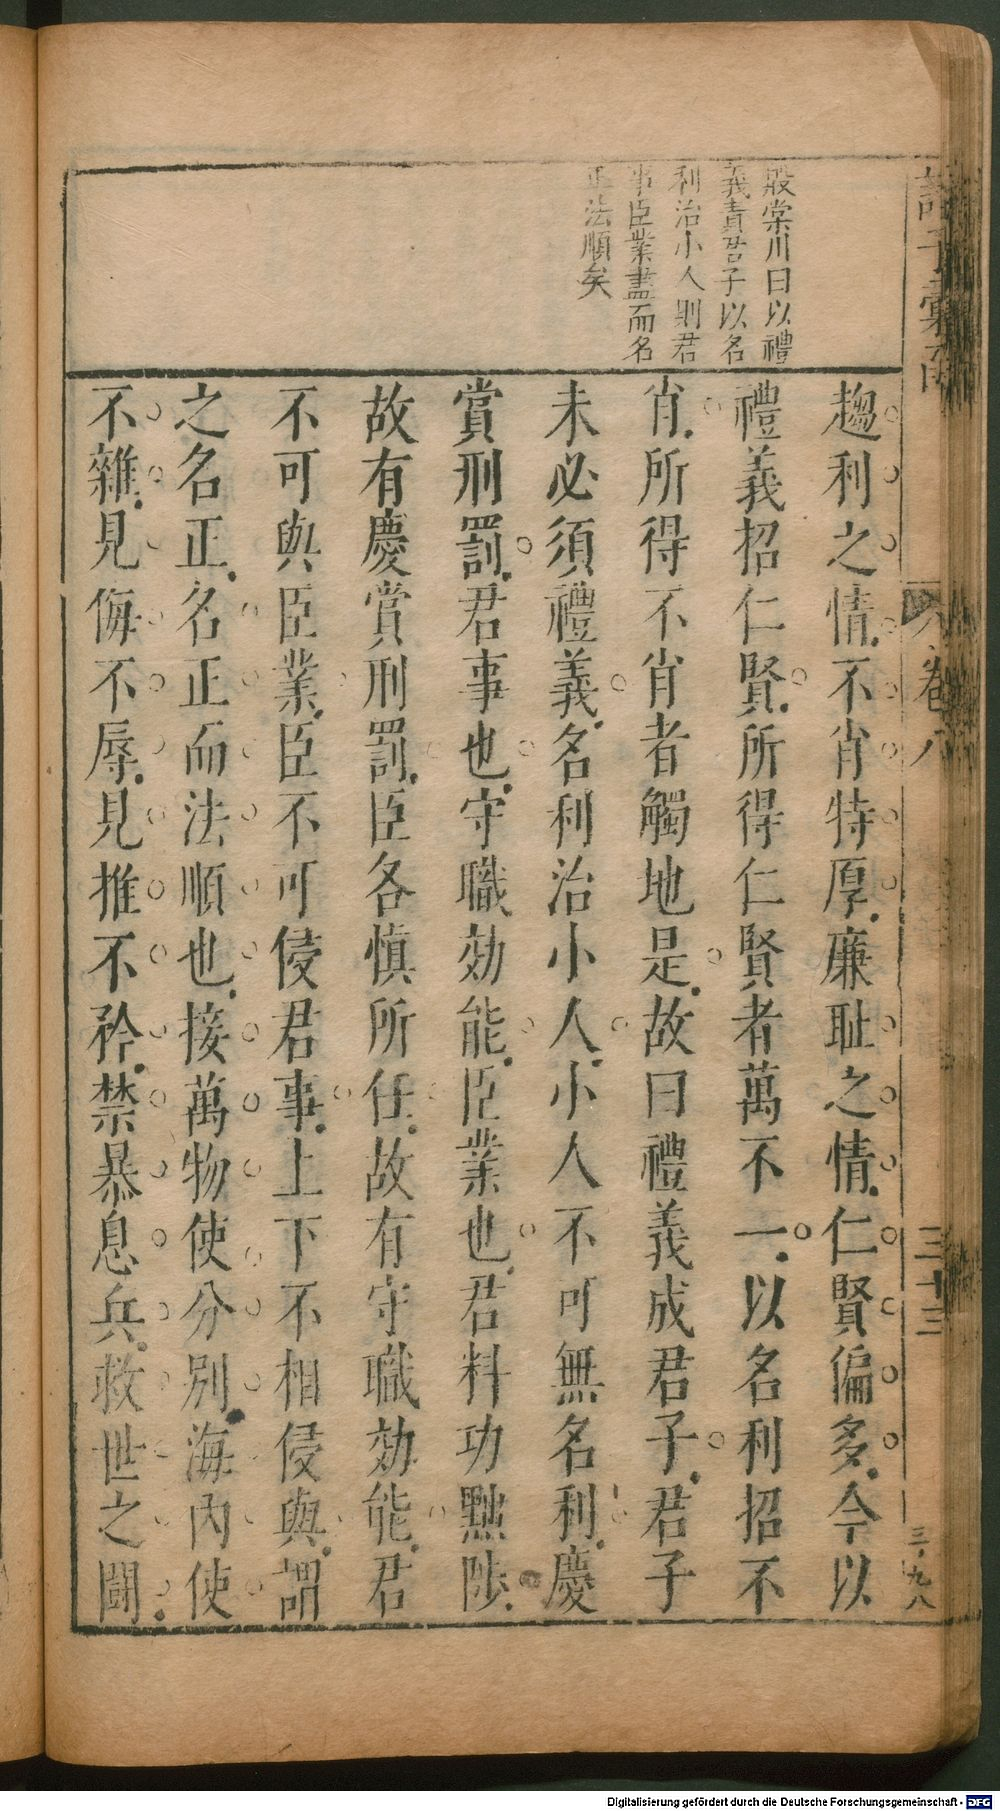 殷棠川曰以禮
義責君子以名
利治小人則君
事臣業盡而名
正法順矣
趨利之情不肖特厚廉耻之情仁賢偏多今以
禮義招仁賢所得仁賢者萬不一以名利招不
肖所得不肖者觸地是故曰禮義成君子君子
未必須禮義名利治小人小人不可無名利慶
賞刑罰君事也守職効能臣業也君料功黜陟
故有慶賞刑罰臣各慎所任故有守職効能君
不可與臣業臣不可侵君事上下不相侵與謂
之名正名正而法順也接萬物使分別海內使
不雜見侮不辱見推不矜禁暴息兵救世之鬭
卷八
三十三
三九八
Digitalisierung gefördert durch die Deutsche Forschungsgemeinschaft - DFG